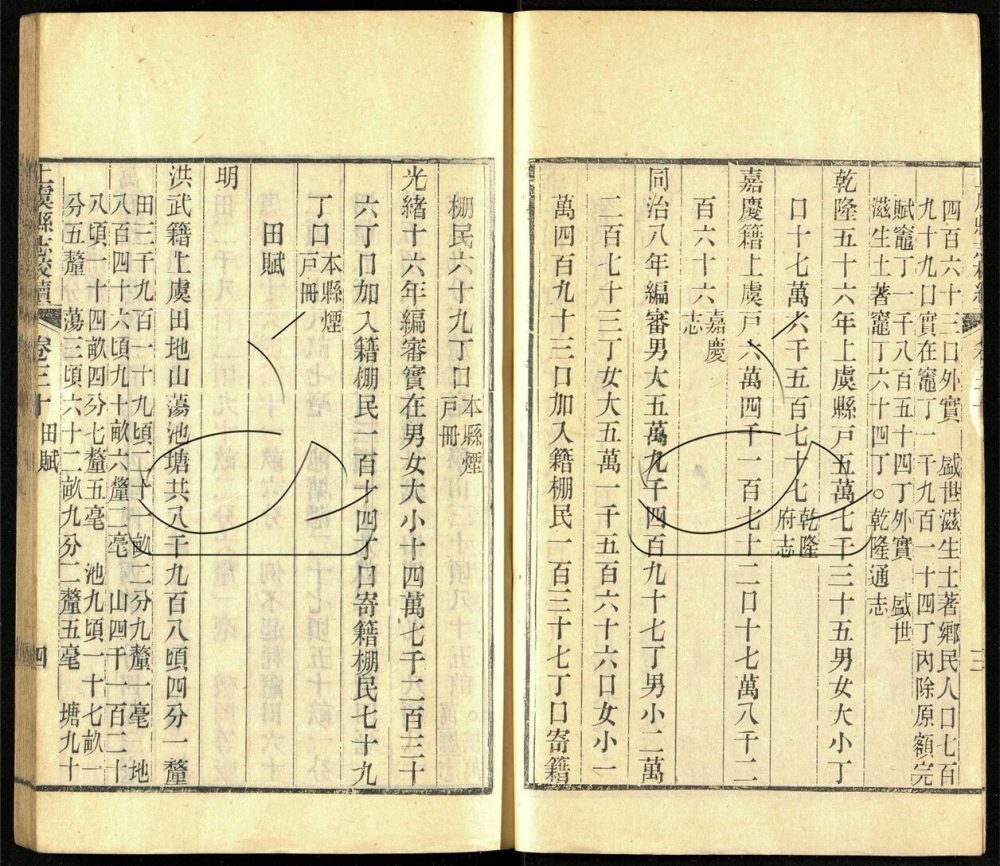 四百六十三口外實　盛世滋生土著鄉民人口七百
九十九口實在竈丁一千九百一十四丁內除原額完
賦竈丁一千八百五十四丁外實　盛世
滋生土著竈丁六十四丁。乾隆通志
乾隆五十六年上虞縣戶五萬七千三十五男女大小丁
口十七萬六千五百七十七乾隆府志
嘉慶籍上虞戶六萬四千一百七十二口十七萬八千二
百六十六嘉慶志
同治八年編審男大五萬九千四百九十七丁男小二萬
二百七十三丁女大五萬一千五百六十六口女小一
萬四百九十三口加入籍棚民一百三十七丁口寄籍
棚民六十九丁口本縣煙戶冊
光緒十六年編審實在男女大小十四萬七千六百三十
六丁口加入籍棚民一百十四丁口寄籍棚民七十九
丁口本縣煙戶冊
田賦
明
洪武籍上虞田地山蕩池塘共八千九百八頃四分一釐
田三千九百一十九頃二十一畝二分九釐一毫　地
八百四十六頃九十畝六釐二毫　山四千一百二十
八頃一十四畝四分七釐五毫　池九頃一十七畝一
分五釐　蕩三頃六十二畝九分二釐五毫　塘九十
上虞縣志校續　卷三十　田賦　四